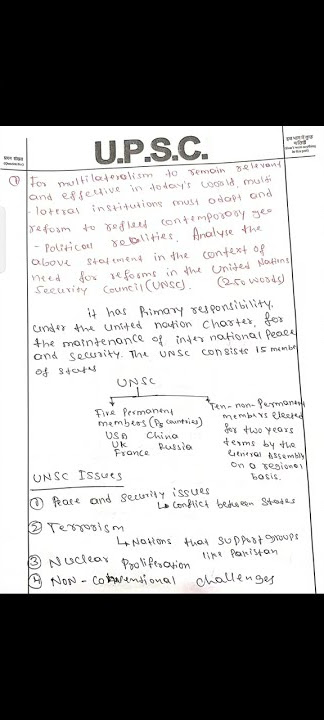 U.P.S.C.
For multilateralism to remain relevant
and effective in today's world, multi
-lateral institutions must adapt and
reform to reflect contemporary geo
-Political realities. Analyse the
above statement in the context of
need for reforms in the United Nations
Security Council (UNSC). (250 words)
it has Primary responsibility,
under the united nation Charter, for
the maintenance of inter national Peace
and security. The UNSC consists 15 member
of states
UNSC
Five Permanent
members (P5 countries)
USA China
UK
France Russia
Ten-non-Permanent
members elected
for two years
terms by the
General Assembly
on a regional
basis.
UNSC Issues
① Peace and security issues
↳ conflict between States
② Terrorism
↳ Nations that support groups
like Pakistan
③ Nuclear Proliferation
④ Non-Conventional challenges